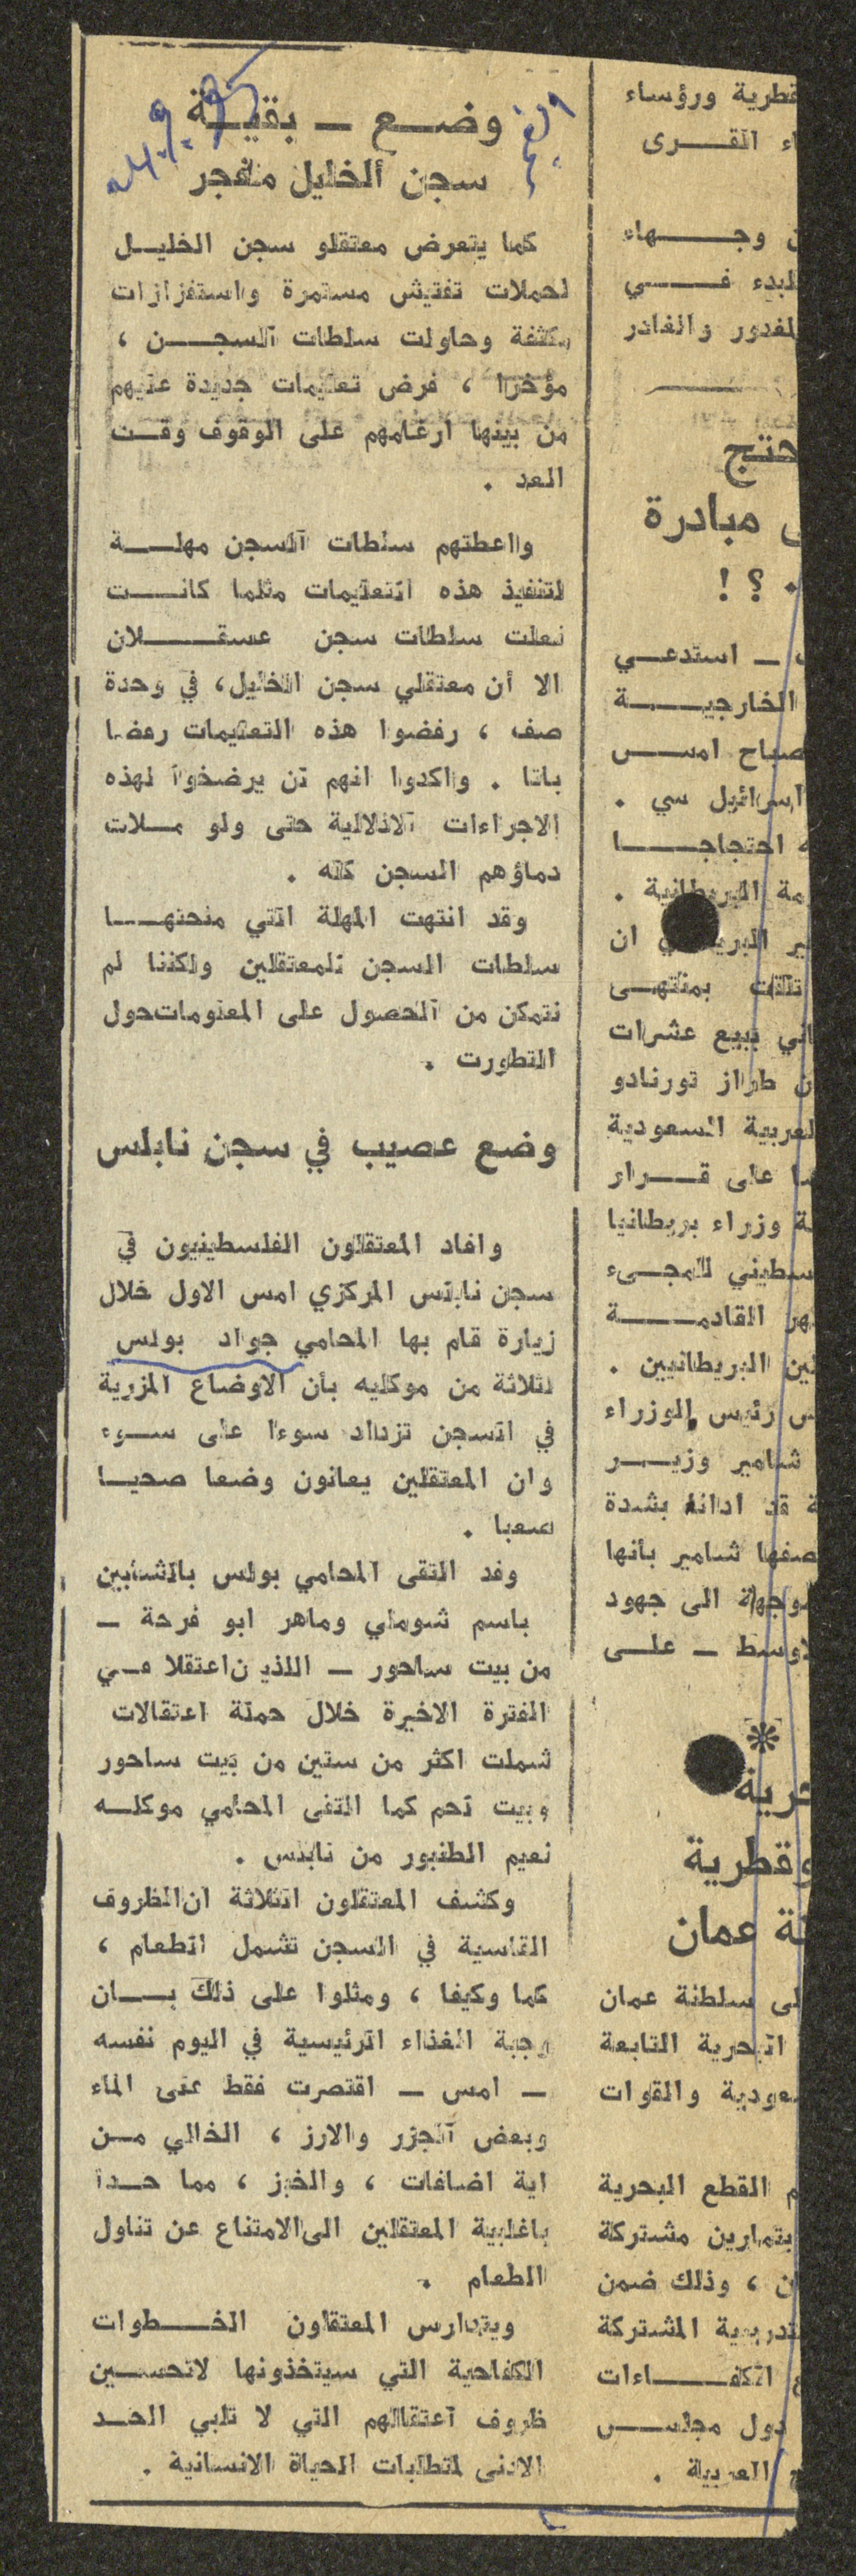 وضـــع ـ بقيـــة
سجن الخليل منفجر
كما يتعرض معتقلو سجن الخليــل
لحملات تفتيش مستمرة واستفزازات
مكثفة وحاولت سلطات السجــن ،
مؤخرا ، فرض تعليمات جديدة عليهم
من بينها ارغامهم على الوقوف وقــت
العد .
واعطتهم سلطات السجن مهلــة
لتنفيذ هذه التعليمات مثلما كانــت
فعلت سلطات سجن عسقــلان
الا أن معتقلي سجن الخليل، في وحدة
صف ، رفضوا هذه التعليمات رفضا
باتا . واكدوا انهم لن يرضخوا لهذه
الاجراءات الاذلالية حتى ولو مــلات
دماؤهم السجن كله .
وقد انتهت المهلة التي منحتهــا
سلطات السجن للمعتقلين ولكننا لم
نتمكن من الحصول على المعلومات حول
التطورت .
وضع عصيب في سجن نابلس
وافاد المعتقلون الفلسطينيون في
سجن نابلس المركزي امس الاول خلال
زيارة قام بها المحامي جواد بولس
لثلاثة من موكليه بأن الاوضاع المزرية
في السجن تزداد سوءا على ســوء
وان المعتقلين يعانون وضعا صحيــا
صعبا .
وقد التقى المحامي بولس بالشابين
باسم شوملي وماهر ابو فرحة ـ
من بيت ساحور ـ اللذين اعتقلا فــي
الفترة الاخيرة خلال حملة اعتقالات
شملت اكثر من ستين من بيت ساحور
وبيت لحم كما التقى المحامي موكلــه
نعيم الطنبور من نابلس .
وكشف المعتقلون الثلاثة ان الظروف
القاسية في السجن تشمل الطعام ،
كما وكيفا ، ومثلوا على ذلك بــان
وجبة الغذاء الرئيسية في اليوم نفسه
ـ امس ـ اقتصرت فقط على الماء
وبعض الجزر والارز ، الخالي مــن
اية اضافات ، والخبز ، مما حــدا
باغلبية المعتقلين الى الامتناع عن تناول
الطعام .
ويتدارس المعتقلون الخــطوات
الكفاحية التي سيتخذونها لاتحســين
ظروف اعتقالهم التي لا تلبي الحــد
الادنى لمتطلبات الحياة الانسانية .
قطرية ورؤساء
اء القــرى
ن وجــهاء
للبدء فــي
المغدور والغادر
حتج
مبادرة
. ؟ !
ـ استدعــي
الخارجيــة
صباح امــس
اسرائيل سي .
احتجاجــا
مة البريطانية .
ان
تلقت بمنتهــى
اني ببيع عشرات
ن طراز تورنادو
لعربية السعودية
على قــرار
ة وزراء بريطانيا
سطيني للمجــيء
هر القادمــة
لين البريطانيين .
س رئيس الوزراء
شامير وزيــر
ة قد ادانا بشدة
صفها شامير بأنها
وجهة الى جهود
لاوسط ـ علــى
حرية
وقطرية
ة عمان
لى سلطنة عمان
البحرية التابعة
عودية والقوات
م القطع البحرية
بتمارين مشتركة
ن ، وذلك ضمن
تدريبية المشتركة
ع الكفــاءات
دول مجلــس
ج العربية .